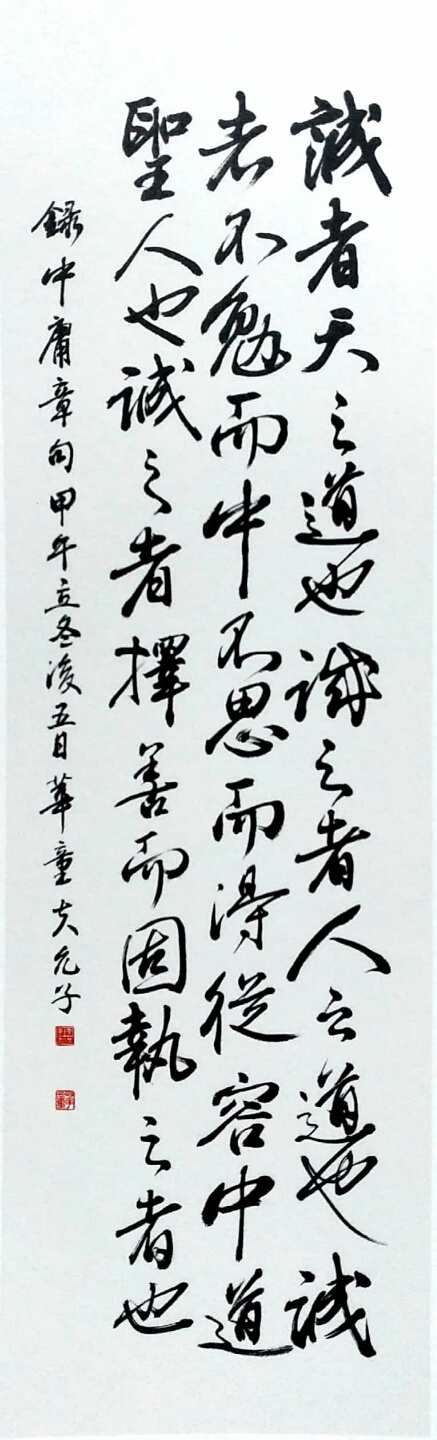 誠者天之道也誠之者人之道也誠
者不勉而中不思而得從容中道
聖人也誠之者擇善而固執之者也
錄中庸章句甲午立冬後五日華童